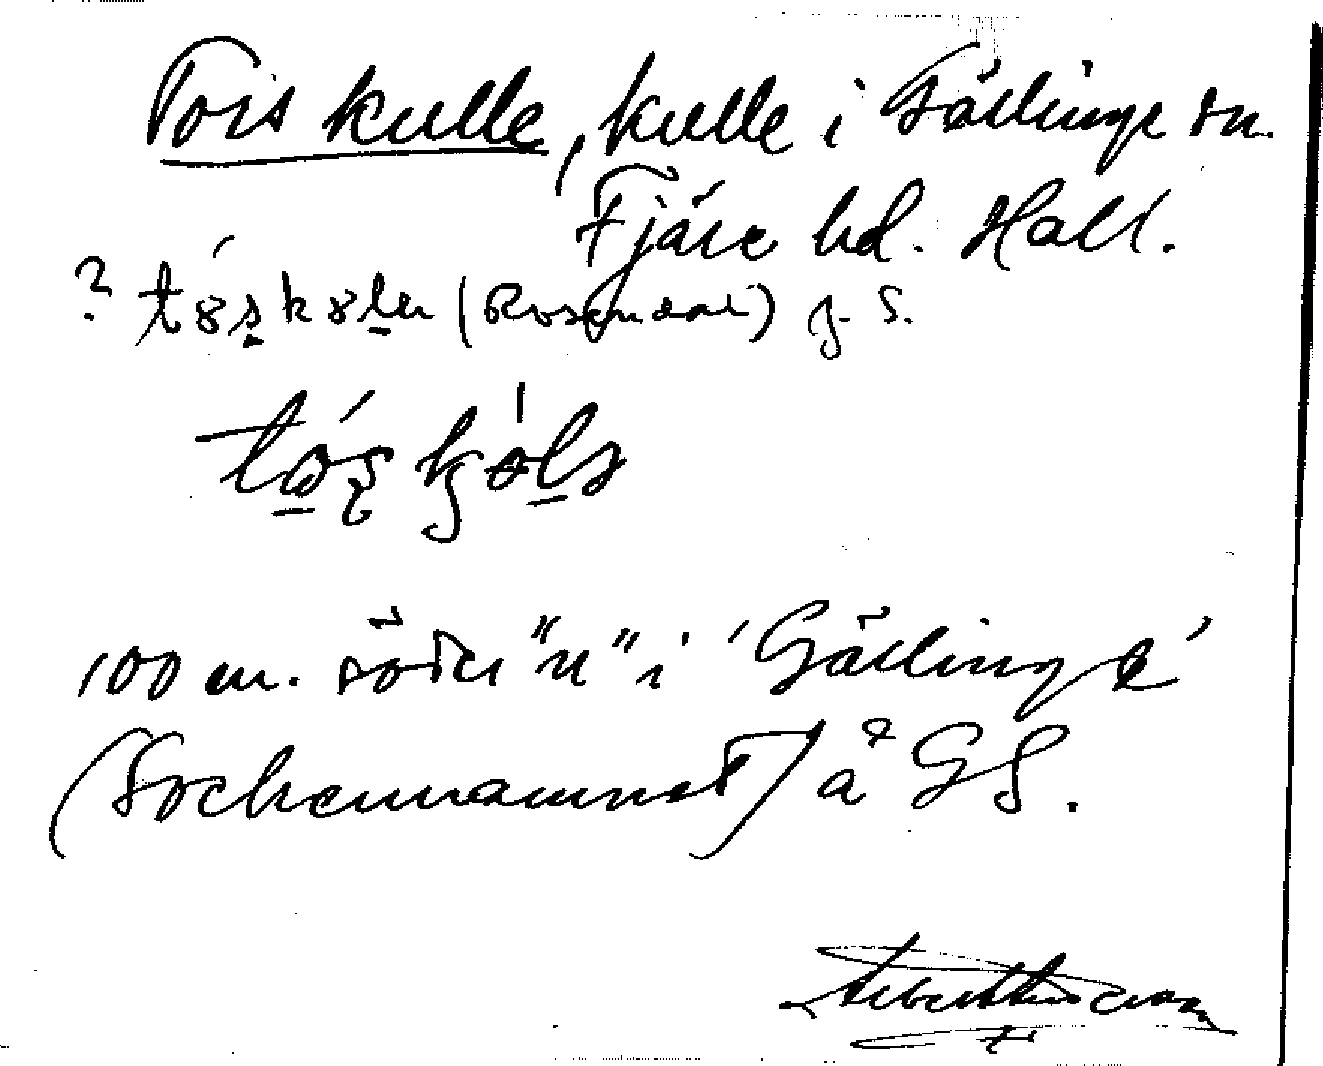 Tors kulle, kulle i Gällinge sn.
Fjäre hd. Hall.
? (Rosendal) g. S.
100 m. söder "n" i 'Gällinge'
(Sockennamnet) å GS.